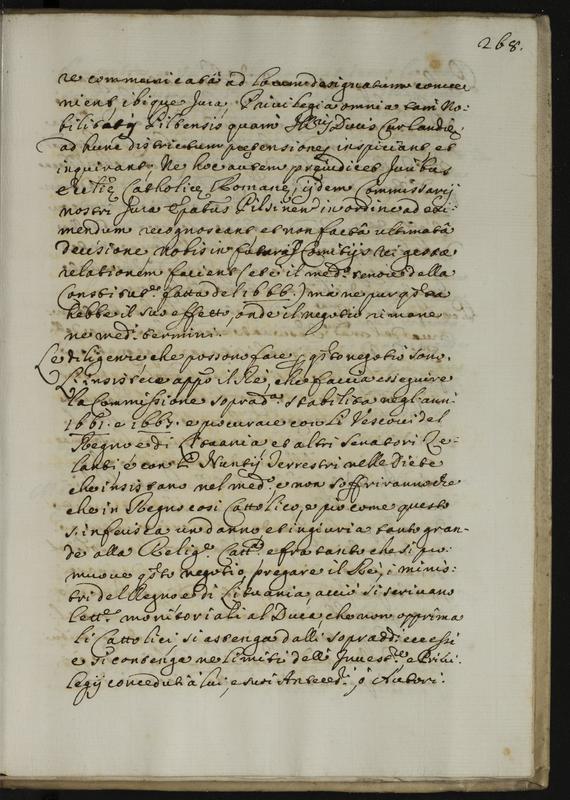 268.
re communicata ad locum designatum conve
nient, ibique Jura, Privilegia omnia tam No-
bilitatis Piltensis quam Ill:mi Ducis Curlandiæ
ad hunc districtum prætensiones inspiciant et
inquirant; Ne hoc autem præiudicet Juribus
Ecclię Catholicę Romanę, ijdem Commissarij
nostri Jura Epatus Pilsinen in ordine ad exi-
mendum recognoscant et non facta ultimata
decisione nobis in futuris Comitijs rei gestæ
relationem facient (etc il med.o tenore della
Constitut.e fatta del 1666.) mà ne pur q.sta
hebbe il suo effetto, onde il negotio rimane
ne med.i termini.
Le diligenze che possono farse p q.sto negotio sono.
L'insistere app.o il Rè, che faccia esseguire
la Commissione soprad.a stabilita negl'anni
1661. e 1667. e procurare con li Vescovi del
Regno e di Lituania et altri Senatori Ze-
lanti, e con li Nuntij Terrestri nelle Diete
che insistano nel med.o e non soffriranno che
che in Regno così Cattolico, e pio come questo
s'inferisca un danno et ingiuria tanto gran-
de alla Relig.e Catt.a e fra tanto che si pro-
muove q.sto negotio, pregare il Rè, i minis-
tri del Regno e di Lituania, acciò si scrivano
lett.e monitoriali al Duca che non opprima
li Cattolici si astenga dalli sopraddi eccessi
e si contenga ne limiti delle Invest.re e Privi-
legij conceduti à lui, e suoi Anteced.i, ò Autori.